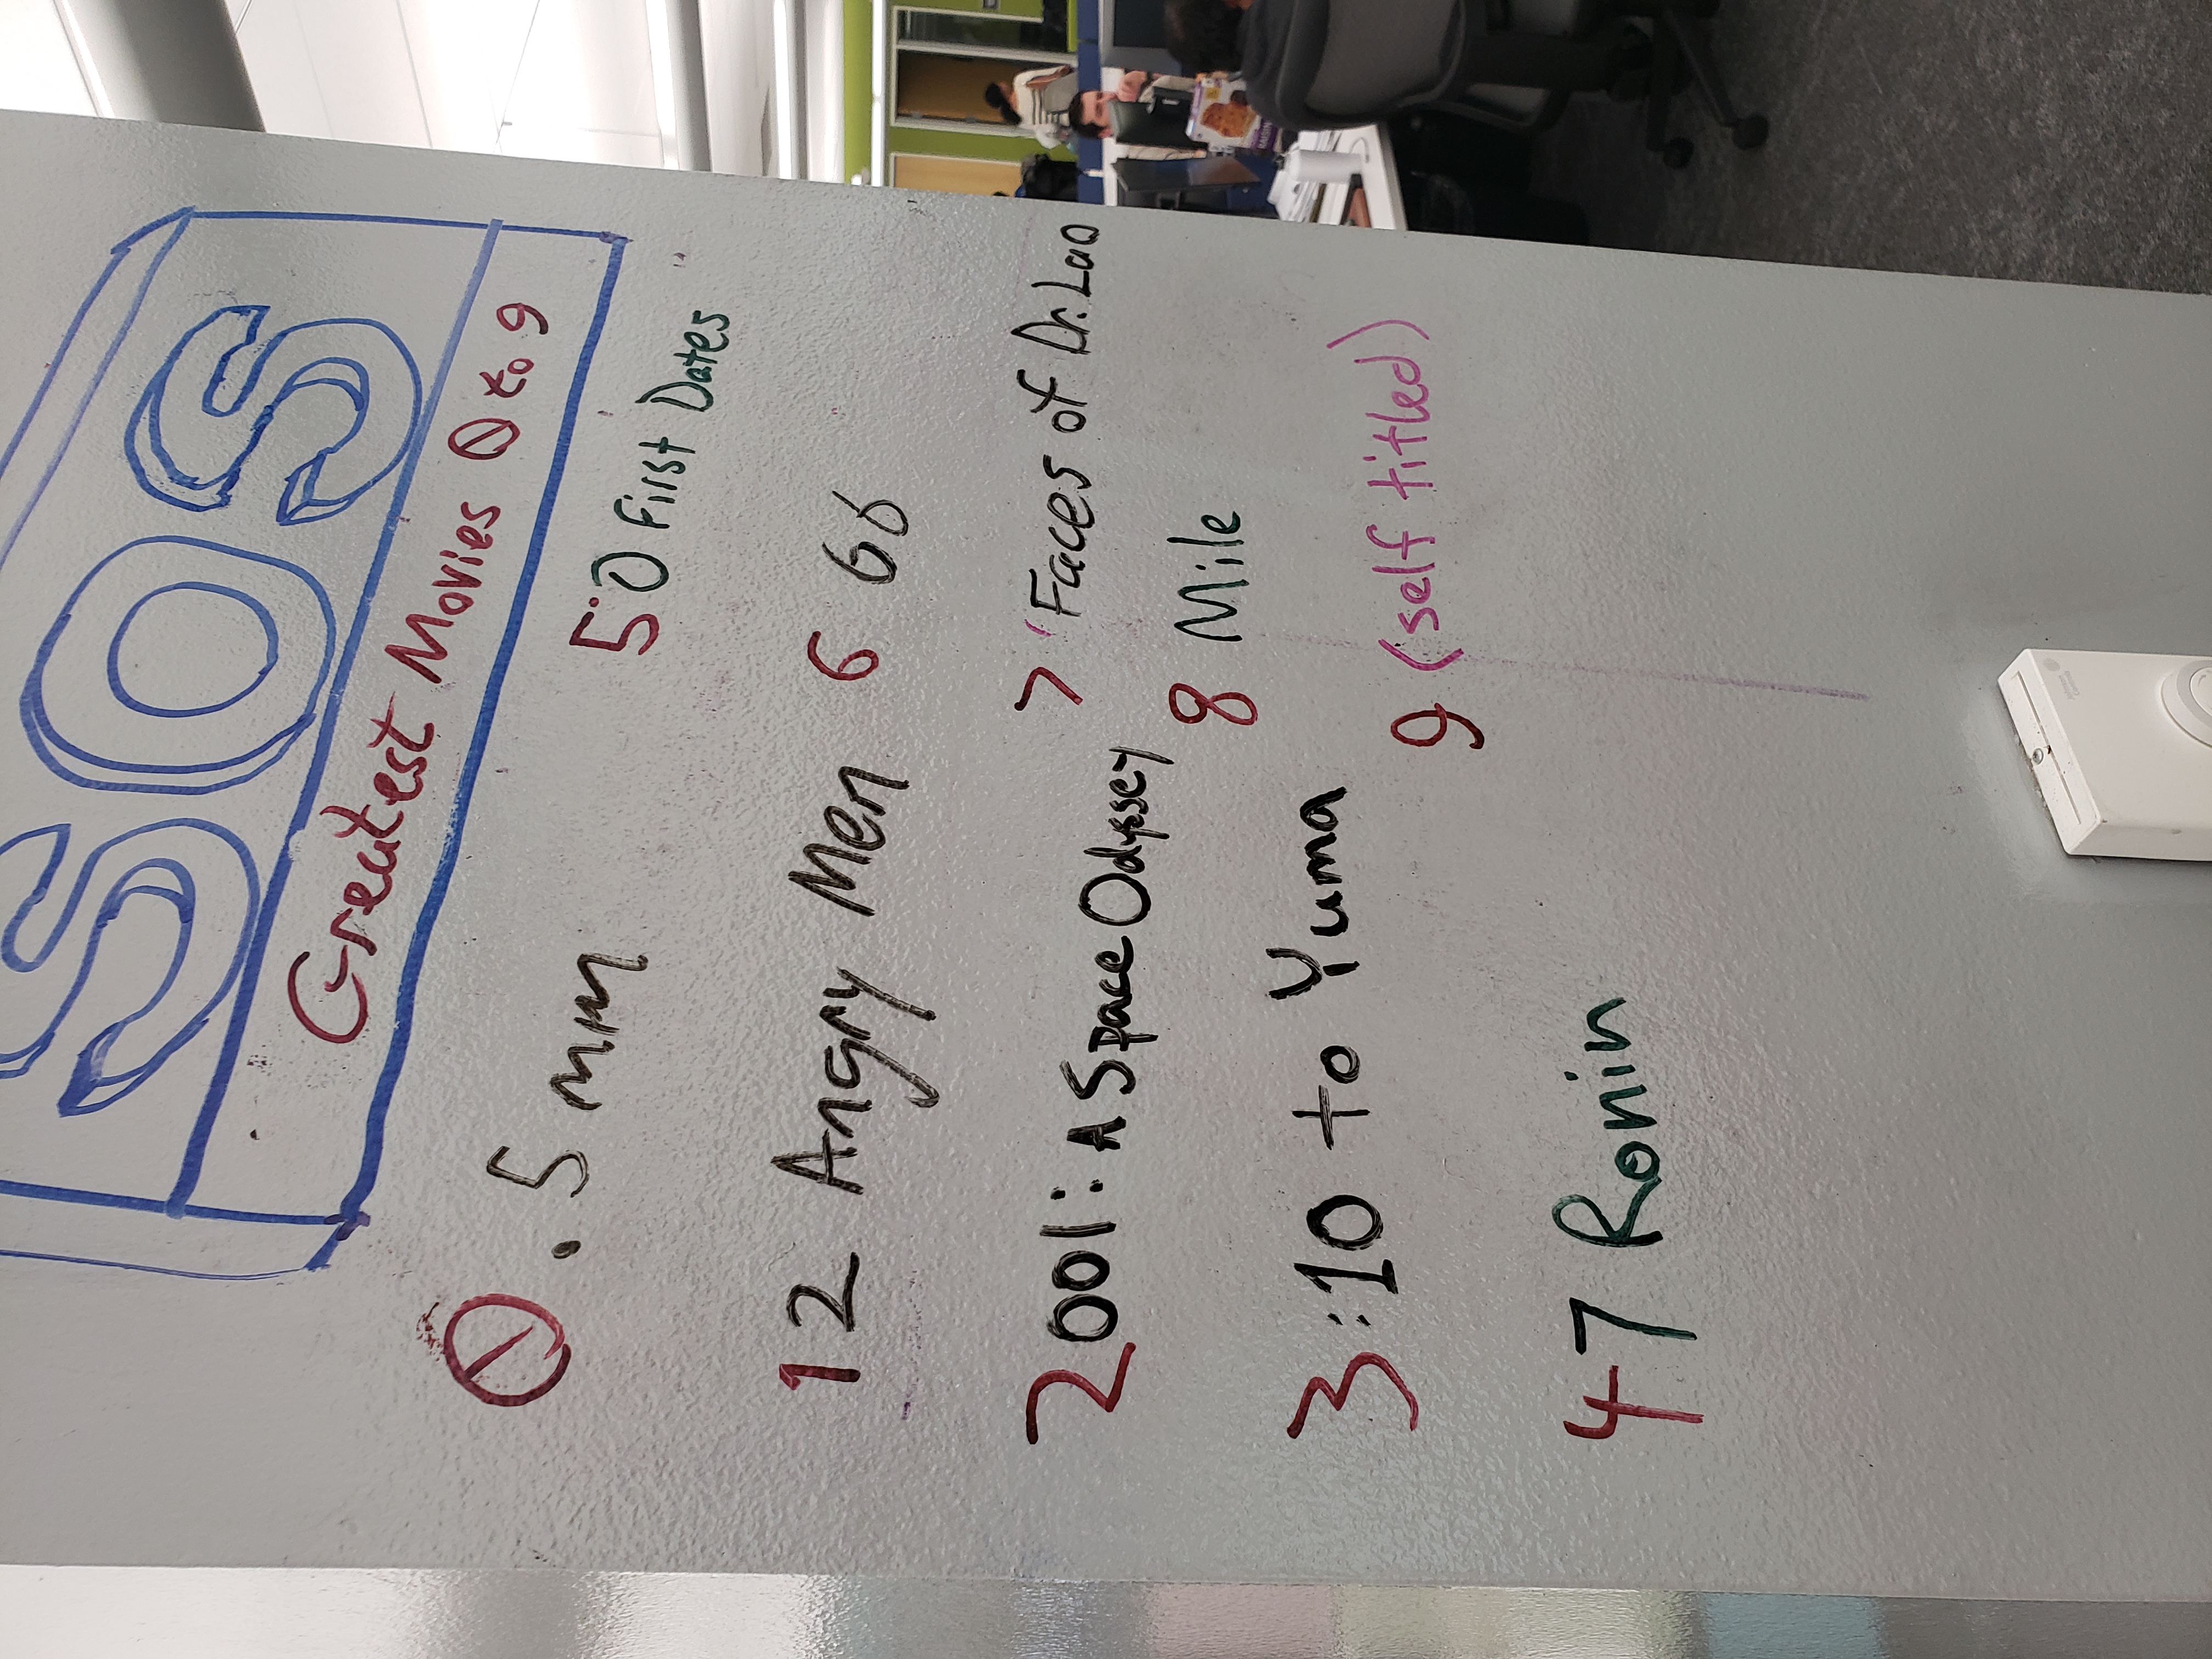 SOS
Greatest Movies 0 to 9
0.5mm
12 Angry Men
2001: A Space Odyssey
3:10 to Yuma
47 Ronin
50 First Dates
6 66
7 Faces of Dr. Lao
8 Mile
9 (self titled)
RAISIN
Johnson
Controls